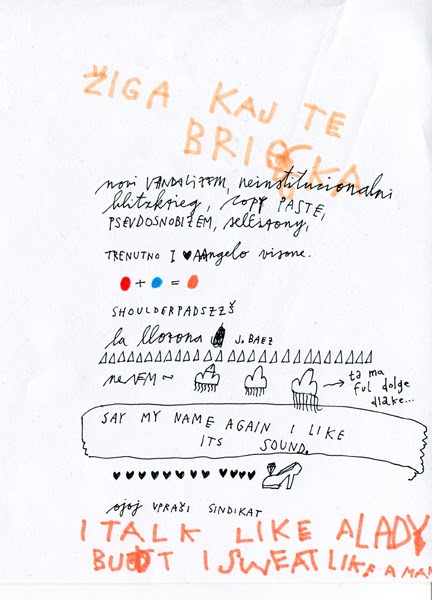 ŽIGA KAJ TE
BRIGKA
novi VANDALIZEM, neinstitucionalni
blitzkrieg, copy PASTE,
PSEVDOSNOBIZEM,
TRENUTNO I ♥ Angelo visone.
+ =
SHOULDERPADSZZŠ
la llorona J. BAEZ
neVEM ~
ta ma
ful dolge
dlake...
SAY MY NAME AGAIN I LIKE
ITS SOUND.
ojoj VPRAŠI SINDIKAT
I TALK LIKE A LADY
BUT I SWEAT LIKE A MA